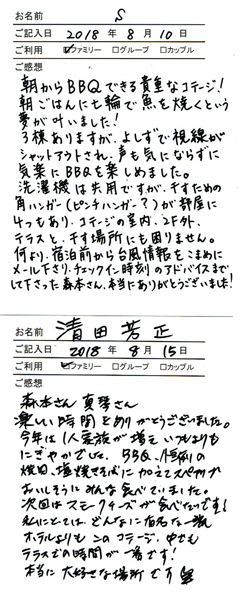 お名前 S
ご記入日 2018 年 8 月 10 日
ご利用 ☑ファミリー □グループ □カップル
ご感想
朝からBBQできる貴重なコテージ!
朝ごはんに七輪で魚を焼くという
夢が叶いました!
3棟ありますが、よしずで視線が
シャットアウトされ、声も気にならずに
気楽にBBQを楽しめました。
洗濯機は共用ですが、干すための
角ハンガー(ピンチハンガー?)が部屋に
4つもあり、コテージの室内、2F外、
テラスと、干す場所にも困りません。
何より、宿泊前から台風情報をこまめに
メール下さり、チェックイン時刻のアドバイスまで
して下さった森本さん、本当にありがとうございました!
お名前 清田芳正
ご記入日 2018 年 8 月 15 日
ご利用 ☑ファミリー □グループ □カップル
ご感想
森本さん 真琴さん
楽しい時間をありがとうございました。
今年は1人家族が増え いつもよりも
にぎやかでした。BBQ、恒例の
焼肉、塩焼きそばに加えてスペアリブ
おいしそうにみんな食べていました。
次回はスモークチーズが食べたいです!
私にとっては、どんなに有名な一流
ホテルよりも このコテージ、中でも
テラスでの時間が一番です!
本当に大好きな場所です